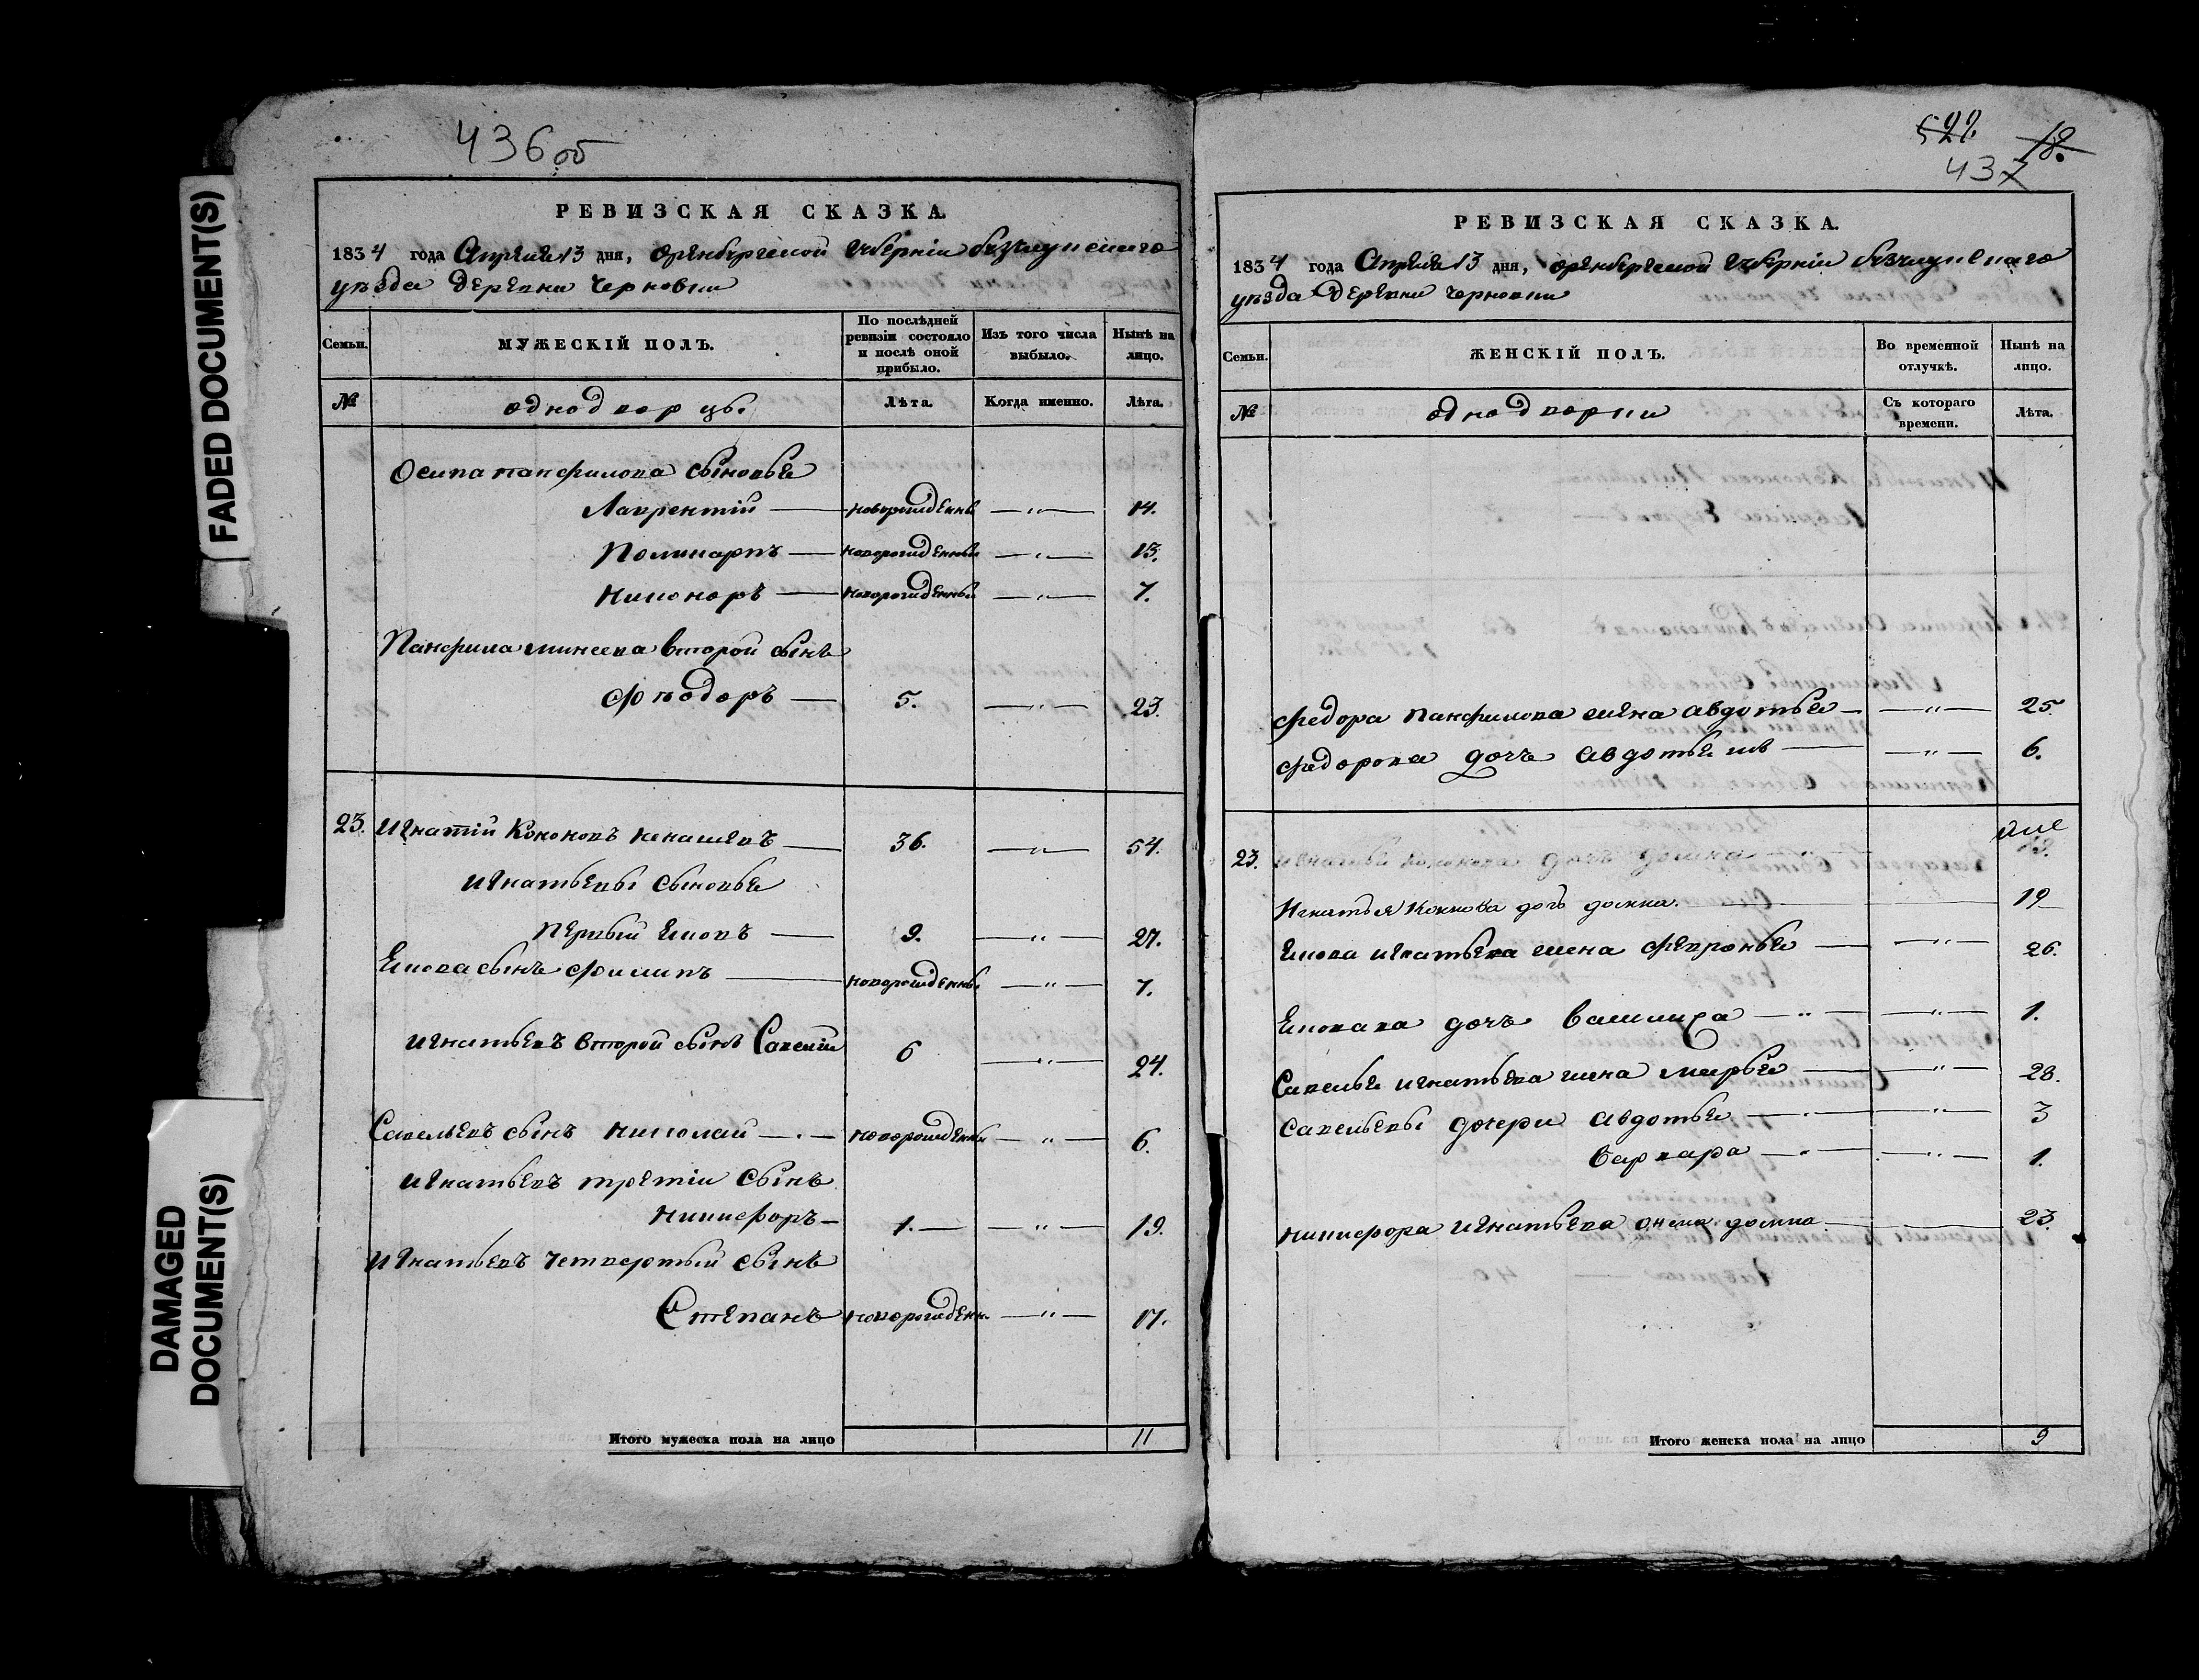 FADED DOCUMENT(S)
DAMAGED
DOCUMENT(S)
436об
РЕВИЗСКАЯ СКАЗКА.
1834 года Апреля 13 дня, оренбургской губернiи бузулукскаго
уезда деревни Черновки
Семьи. МУЖЕСКІЙ ПОЛЪ. По послѣдней ревизіи состояло и послѣ оной прибыло. Изъ того числа выбыло. Нынѣ на лицо.
№ однодворцы. Лѣта. Когда именно. Лѣта.
Осипа панфилова сыновья
Лаврентій новорожденны — " — 14.
Поликарпъ новорожденный — " — 13.
Никоноръ новорожденный — " — 7.
Панфила минеева второй сынъ
Фѣодоръ — 5. — " — 23.
23. Игнатій Кононовъ ненашевъ — 36. — " — 54.
Игнатьевы сыновья
первый Еновъ — 9. — " — 27.
Енова сынъ филипъ — новорожденны. — " — 7.
Игнатьевъ второй сынъ Савелій 6 — " — 24.
Савельевъ сынъ николай — новорожденны — " — 6.
Игнатьевъ третій сынъ
Никифоръ — 1. — " — 19.
Игнатьевъ четвертый сынъ
Степанъ новорожденн. — " — 17.
Итого мужеска пола на лицо 11
522 18.
437
РЕВИЗСКАЯ СКАЗКА.
1834 года Апреля 13 дня, оренбургской губерніи бузулукскаго
уезда деревни черновки
Семьи. ЖЕНСКІЙ ПОЛЪ. Во временной отлучкѣ. Нынѣ на лицо.
№ однодворки Съ котораго времени. Лѣта.
федора панфилова жена авдотья — " — 25.
федорова дочь авдотья — " — 6.
23. игнатья кононова дочь домна 19.
Игнатья Кононова дочь домна. 19
Енова игнатьева жена февронья — " — 26.
Еновава дочь василиса — " — 1.
Савелья игнатьева жена марья — " — 28.
савельевы дочери авдотья — " — 3
варвара — " — 1.
никифора игнатьева жена домна 23.
Итого женска пола на лицо 9